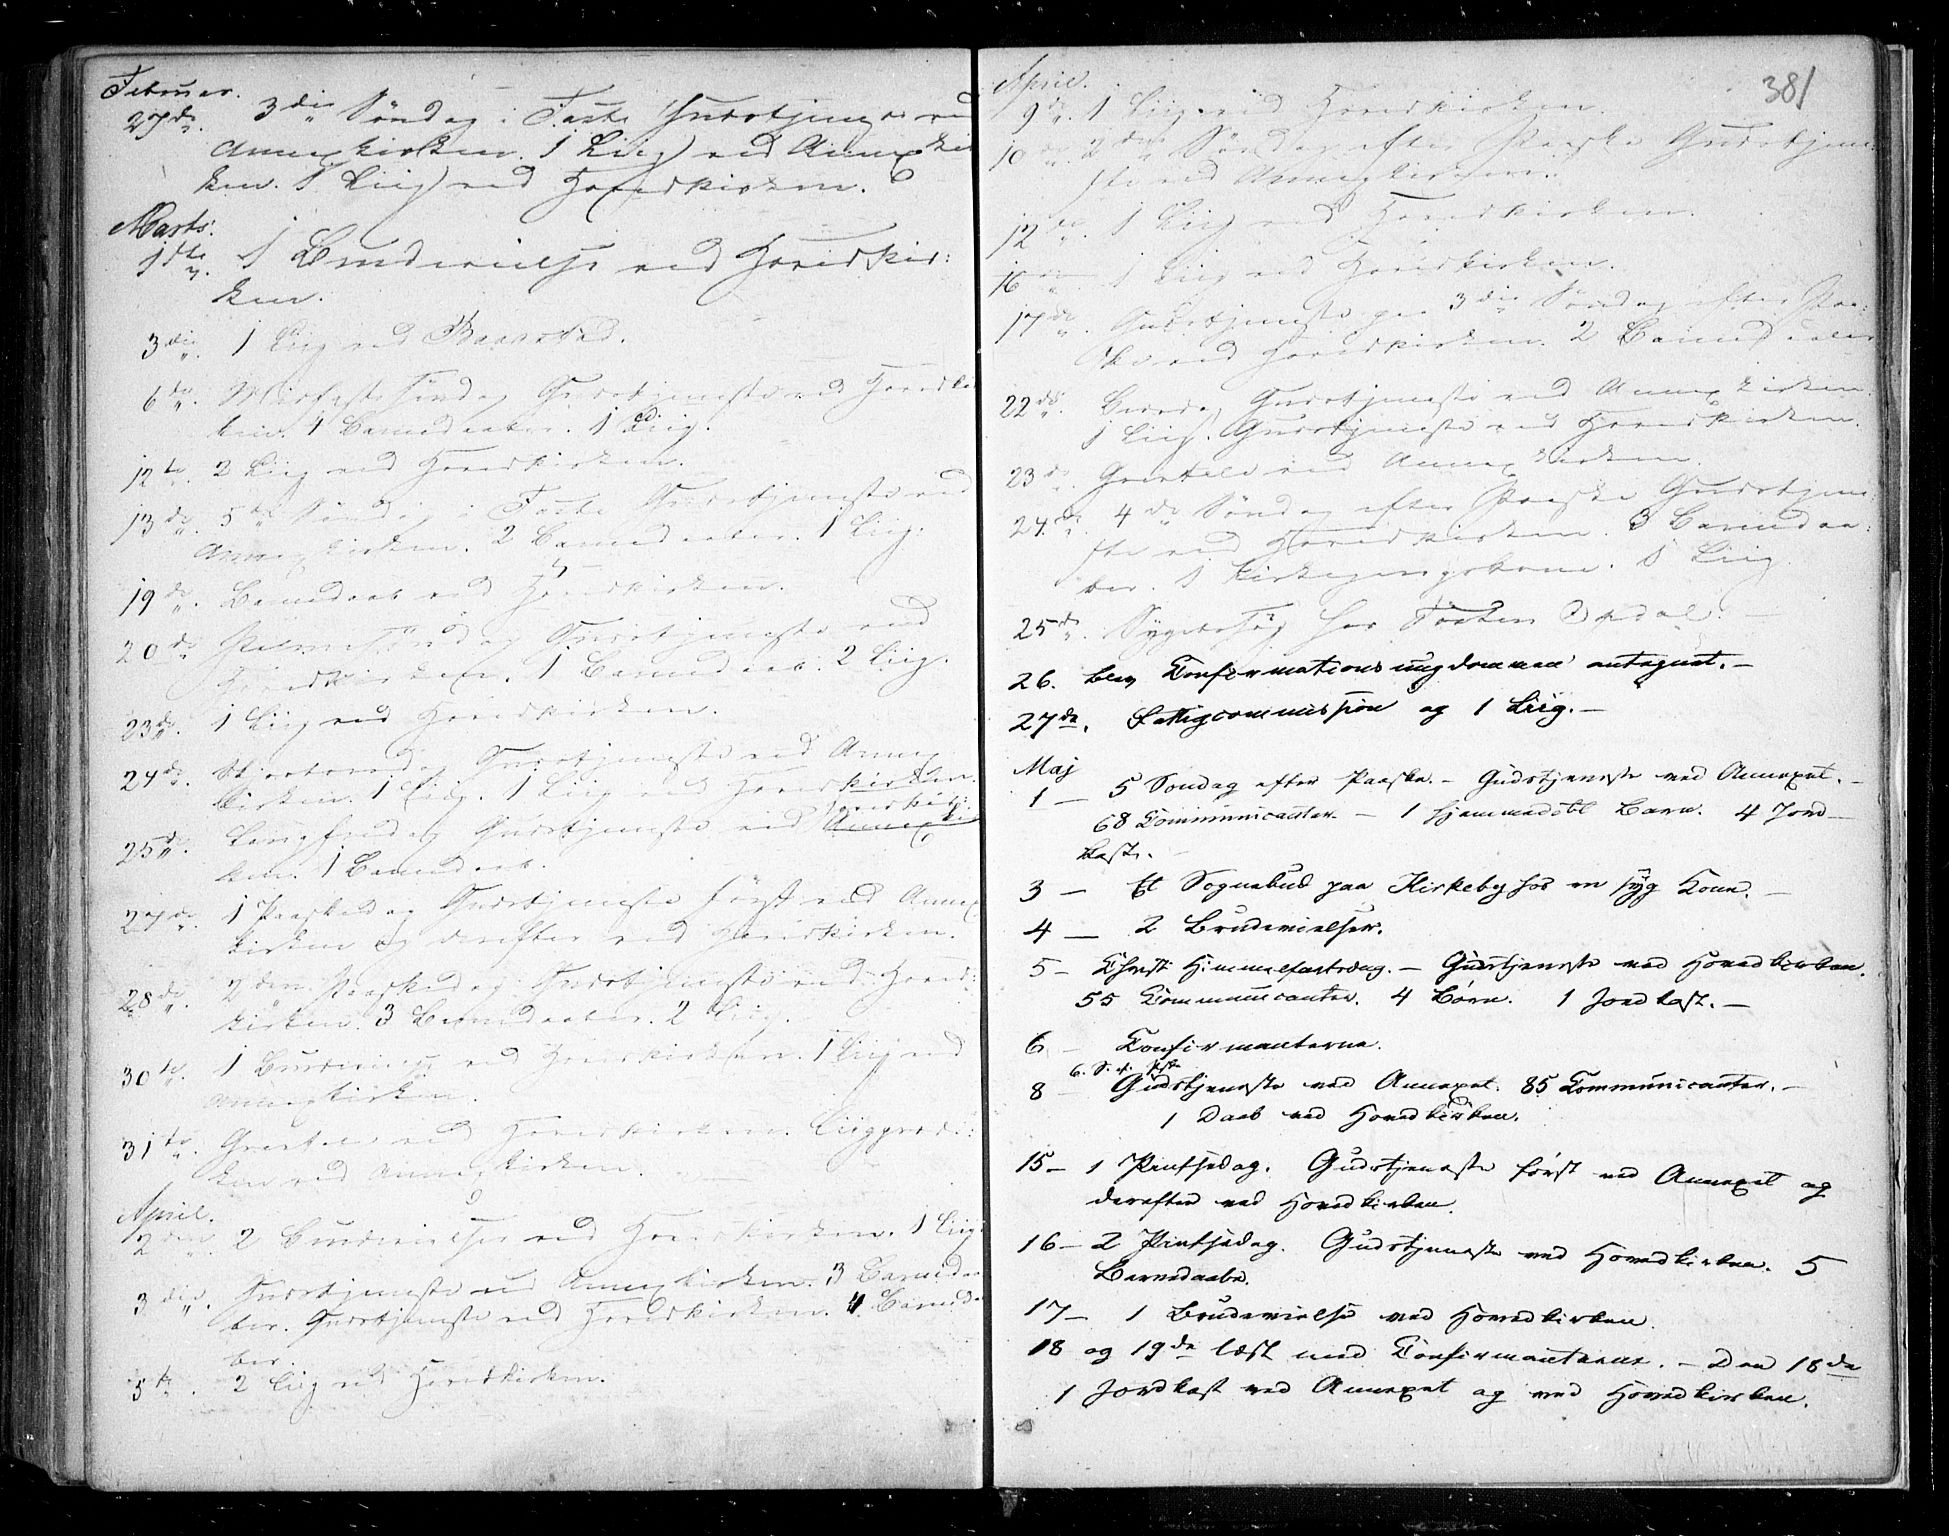 Februar.
27de. 3die Søndag i Faste Gudstjeneste ved
Annexkirken. 1 Liig ved Annexkir
ken. 1 Liig ved Hovedkirken.
Marts.
1ste. 1 Brudevielse ved Hovedkir:
ken.
3die. 1 Liig ved Baastad.
6te. Midfaste Søndag Gudstjeneste ved Hovedkir
ken. 4 Barnedaaber. 1 Liig.
12te. 2 Liig ved Hovedkirken.
13de. 5te Søndag i Faste Gudstjeneste ved
Annexkirken. 2 Barnedaaber. 1 Liig.
19de. Barnedaab ved Hovedkirken.
20de. Palmesøndag Gudstjeneste ved
Hovedkirken. 1 Barnedaab. 2 Liig.
23de. 1 Liig ved Hovedkirken.
24de. Skjærtorsdag Gudstjeneste ved Annex
kirken. 1 Liig. 1 Liig ved Hovedkirken.
Hovedkir:
25de. Langfredag Gudstjeneste ved Annexkir
ken. 1 Barnedaab.
27de. 1 Paaskedag Gudstjeneste først ved Annex
kirken og derefter ved Hovedkirken.
28de. 2den Paaskedag Gudstjeneste ved Hoved:
kirken. 3 Barnedaaber. 2 Liig.
30te. 1 ved Hovedkirken. 1 Liig ved
Annexkirken.
31te. ved Hovedkirken. Liigprædi:
ken ved Annexkirken.
April.
2den. 2 Brudevielser ved Hovedkirken. 1 Liig
3die. Gudstjeneste ved Annexkirken. 3 Barnedaa
ber. Gudstjeneste ved Hovedkirken. 4 Barneda
ber.
5te. 2 Liig ved Hovedkirken.
381
April.
9de. 1 Liig ved Hovedkirken.
10de. 2den Søndag efter Paaske Gudstjene
ste ved Annexkirken.
12te. 1 Liig ved Hovedkirken.
16 1 Liig ved Hovedkirken.
17de. Gudstjeneste paa 3die Søndag efter Paa:
ske ved Hovedkirken. 2 Barnedaaber
22de. Bededag Gudstjeneste ved Annexkirken.
1 Liig. Gudstjeneste ved Hovedkirken.
23de. ved Annexkirken.
24de. 4de Søndag efter Paaske Gudstjene
ste ved Hovedkirken. 3 Barnedaa:
ber. 1 Kirkegangskone. 1 Liig.
25de. Sygebesøg hos Torsten Opdal.
26. blev Confirmationsungdommen antagnet. –
27de. Fattigcommission og 1 Liig. –
Maj
1 – 5 Søndag efter Paaske. – Gudstjeneste ved Annexet. –
68 Communicanter. – 1 hjemmedøbt Barn. 4 Jord–
kast. –
3 – Et Sognebud paa Kirkeby hos en syg Kone. –
4 – 2 Brudevielser.
5 – Christi Himmelfartsdag. – Gudstjeneste ved Hovedkirken.
55 Communicanter. 4 Børn. 1 Jordkast. –
6 – Confirmanterne.
6. S. e. Paaske
8 – Gudstjeneste ved Annexet. 85 Communicanter. –
1 Daab ved Hovedkirken.
15 – 1 Pintsedag. Gudstjeneste først ved Annexet og
derefter ved Hovedkirken.
16 – 2 Pintsedag. Gudstjeneste ved Hovedkirken. 5
Barnedaabe.
17 – 1 Brudevielse ved Hovedkirken.
18 og 19de læst med Confirmanterne. – Den 18de
1 Jordkast ved Annexet og ved Hovedkirken.